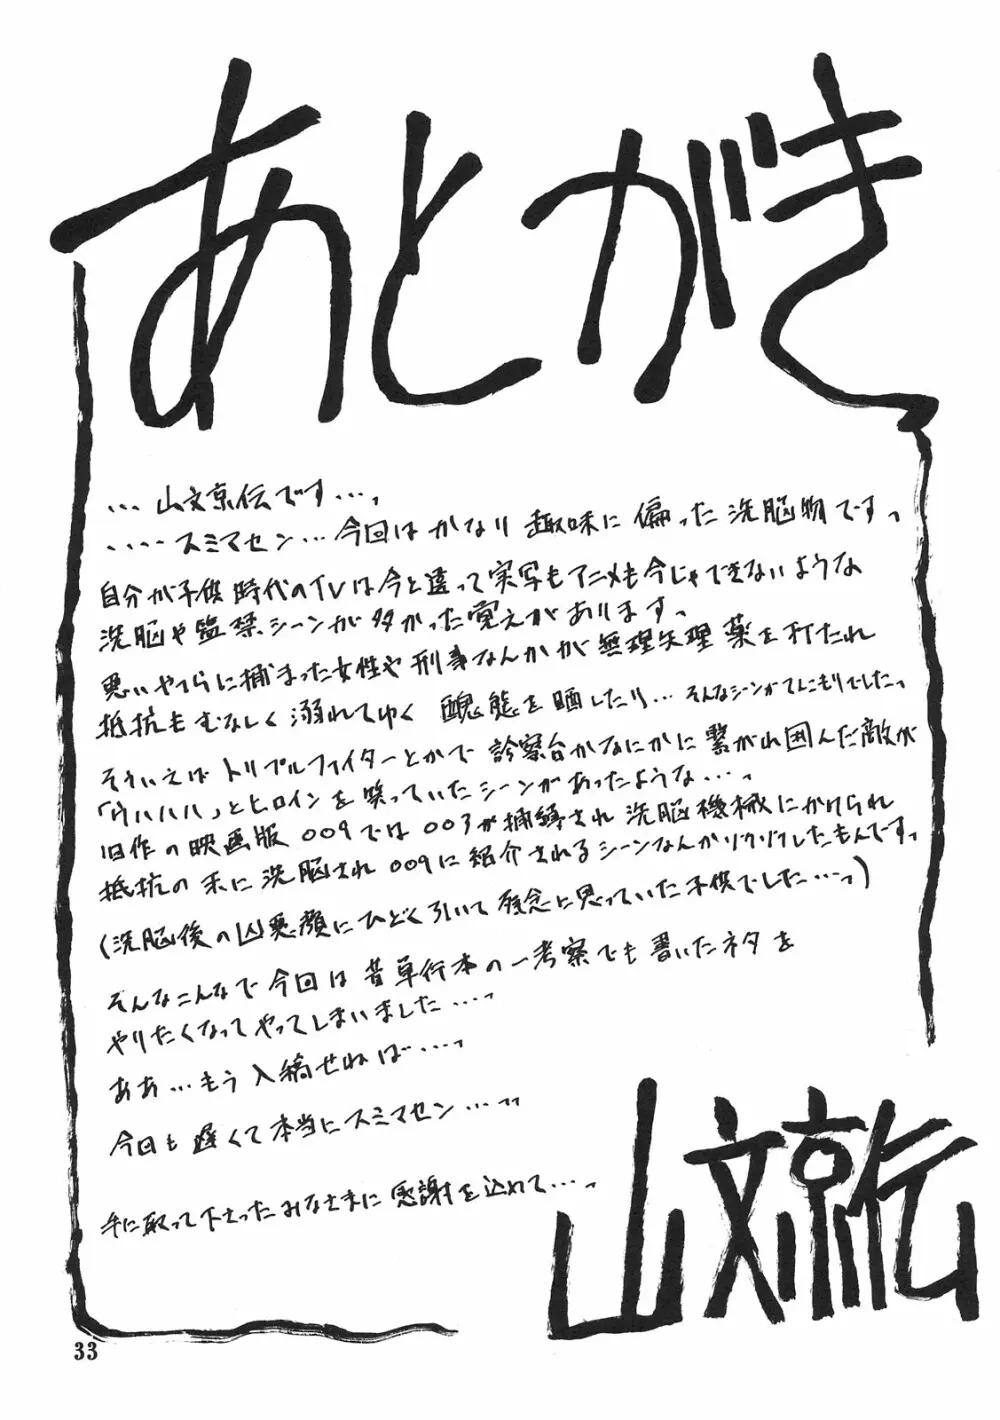 あとがき
…山文京伝です…。
…スミマセン…今回はかなり趣味に偏った洗脳物です。
自分が子供時代のTVは今と違って実写もアニメも今じゃできないような
洗脳や監禁シーンが多かった覚えがあります。
悪いやつらに捕まった女性や刑事なんかが無理矢理薬を打たれ
抵抗もむなしく溺れてゆく醜態を晒したり…そんなシーンがてんこもりでした。
そういえばトリプルファイターとかで診察台かなにかに繋がれ囲んだ敵が
「ウハハハハ」とヒロインを笑っていたシーンがあったような…。
旧作の映画版009では003が捕縛され洗脳機械にかけられ
抵抗の末に洗脳され009に紹介されるシーンなんかゾクゾクしたもんです。
(洗脳後の凶悪顔にひどく引いて残念に思っていた子供でした…。)
そんなこんなで今回は昔単行本の一考察でも書いたネタを
やりたくなってやってしまいました…。
ああ…もう入稿せねば…。
今回も遅くて本当にスミマセン…。
手に取って下さったみなさまに感謝を込めて…。
山文京伝
33